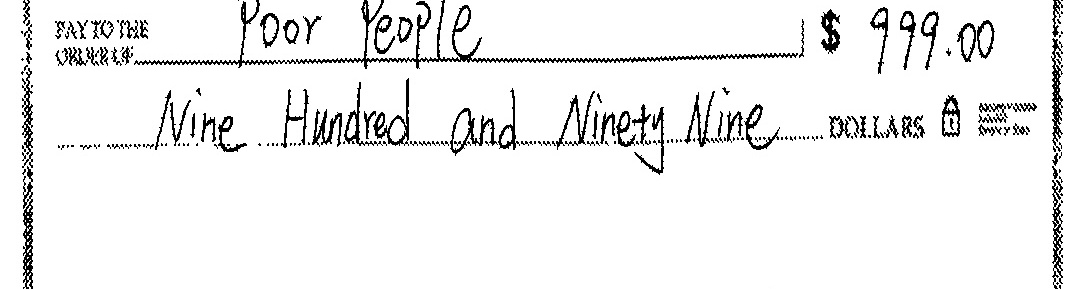 PAY TO THE ORDER OF Poor People $ 999.00
Nine Hundred and Ninety Nine DOLLARS